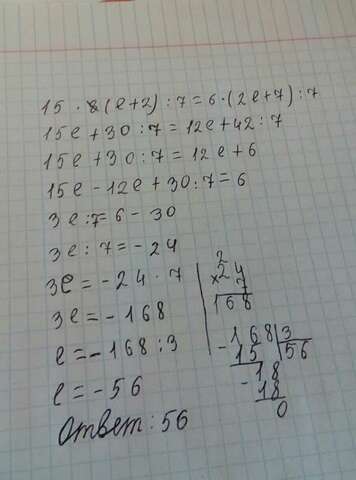 15 · 8(e+2) : 7 = 6 · (2e+7) : 7
15e + 30 : 7 = 12e + 42 : 7
15e + 30 : 7 = 12e + 6
15e - 12e + 30 : 7 = 6
3e : 7 = 6 - 30
3e : 7 = - 24
3e = - 24 · 7
3e = - 168
e = - 168 : 3
e = - 56
Ответ : 56
2
× 24
7
168
- 168 | 3
15 | 56
- 18
18
0